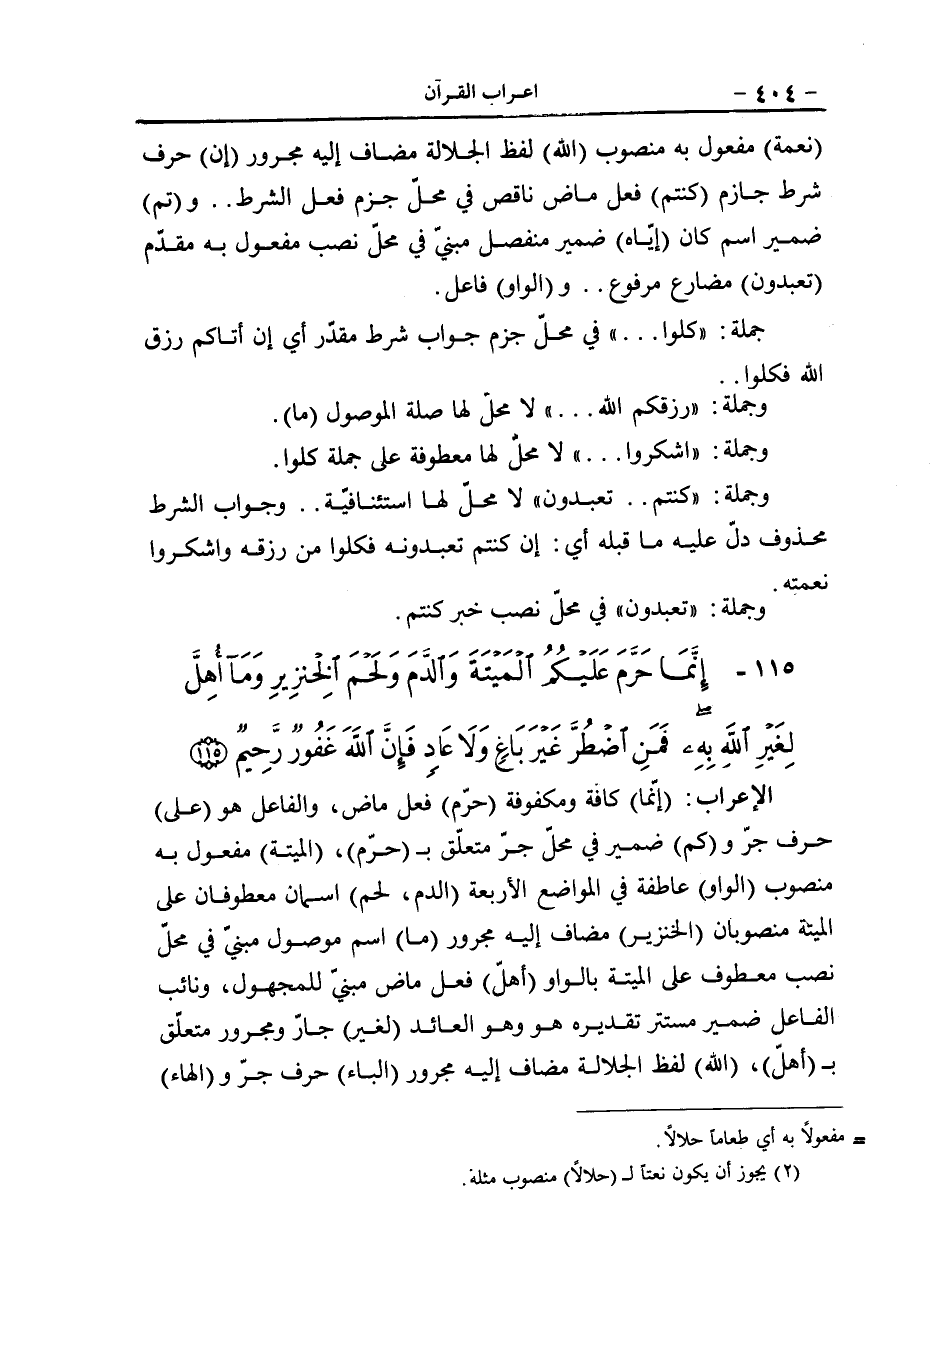 - ٤٠٤ - اعراب القرآن
(نعمة) مفعول به منصوب (الله) لفظ الجلالة مضاف إليه مجرور (إن) حرف
شرط جازم (كنتم) فعل ماض ناقص في محلّ جزم فعل الشرط.. و(تم)
ضمير اسم كان (إيّاه) ضمير منفصل مبنيّ في محلّ نصب مفعول به مقدّم
(تعبدون) مضارع مرفوع.. و(الواو) فاعل.
جملة: «كلوا...» في محلّ جزم جواب شرط مقدّر أي إن أتاكم رزق
الله فكلوا..
وجملة: «رزقكم الله...» لا محلّ لها صلة الموصول (ما).
وجملة: «اشكروا...» لا محلّ لها معطوفة على جملة كلوا.
وجملة: «كنتم.. تعبدون» لا محلّ لها استئنافيّة.. وجواب الشرط
محذوف دلّ عليه ما قبله أي: إن كنتم تعبدونه فكلوا من رزقه واشكروا
نعمته.
وجملة: «تعبدون» في محلّ نصب خبر كنتم.
١١٥ - إِنَّمَا حَرَّمَ عَلَيْكُمُ ٱلْمَيْتَةَ وَٱلدَّمَ وَلَحْمَ ٱلْخِنزِيرِ وَمَآ أُهِلَّ
لِغَيْرِ ٱللَّهِ بِهِۦ ۖ فَمَنِ ٱضْطُرَّ غَيْرَ بَاغٍ وَلَا عَادٍ فَإِنَّ ٱللَّهَ غَفُورٌ رَّحِيمٌ ﴿١١٥﴾
الإعراب: (إنّما) كافة ومكفوفة (حرّم) فعل ماض، والفاعل هو (على)
حرف جرّ و(كم) ضمير في محلّ جرّ متعلّق بـ (حرّم)، (الميتة) مفعول به
منصوب (الواو) عاطفة في المواضع الأربعة (الدم، لحم) اسمان معطوفان على
الميتة منصوبان (الخنزير) مضاف إليه مجرور (ما) اسم موصول مبنيّ في محلّ
نصب معطوف على الميتة بالواو (أهلّ) فعل ماض مبنيّ للمجهول، ونائب
الفاعل ضمير مستتر تقديره هو وهو العائد (لغير) جارّ ومجرور متعلّق
بـ (أهلّ)، (الله) لفظ الجلالة مضاف إليه مجرور (الباء) حرف جرّ و(الهاء)
= مفعولاً به أي طعاماً حلالاً.
(٢) يجوز أن يكون نعتاً لـ (حلالاً) منصوب مثلة.